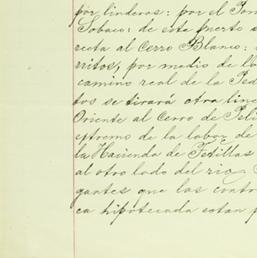 por linderos: por el Pon
Sobaco: de este puerto s
recta al Cerro Blanco:
rritos, por medio de lo
camino real de la Ped
tos se tirará otra line
Oriente al Cerro de Peli
extremo de la labor de
la Hacienda de Pedillas
al otro lado del rio.
gantes que las contr
ca hipotecada estan p